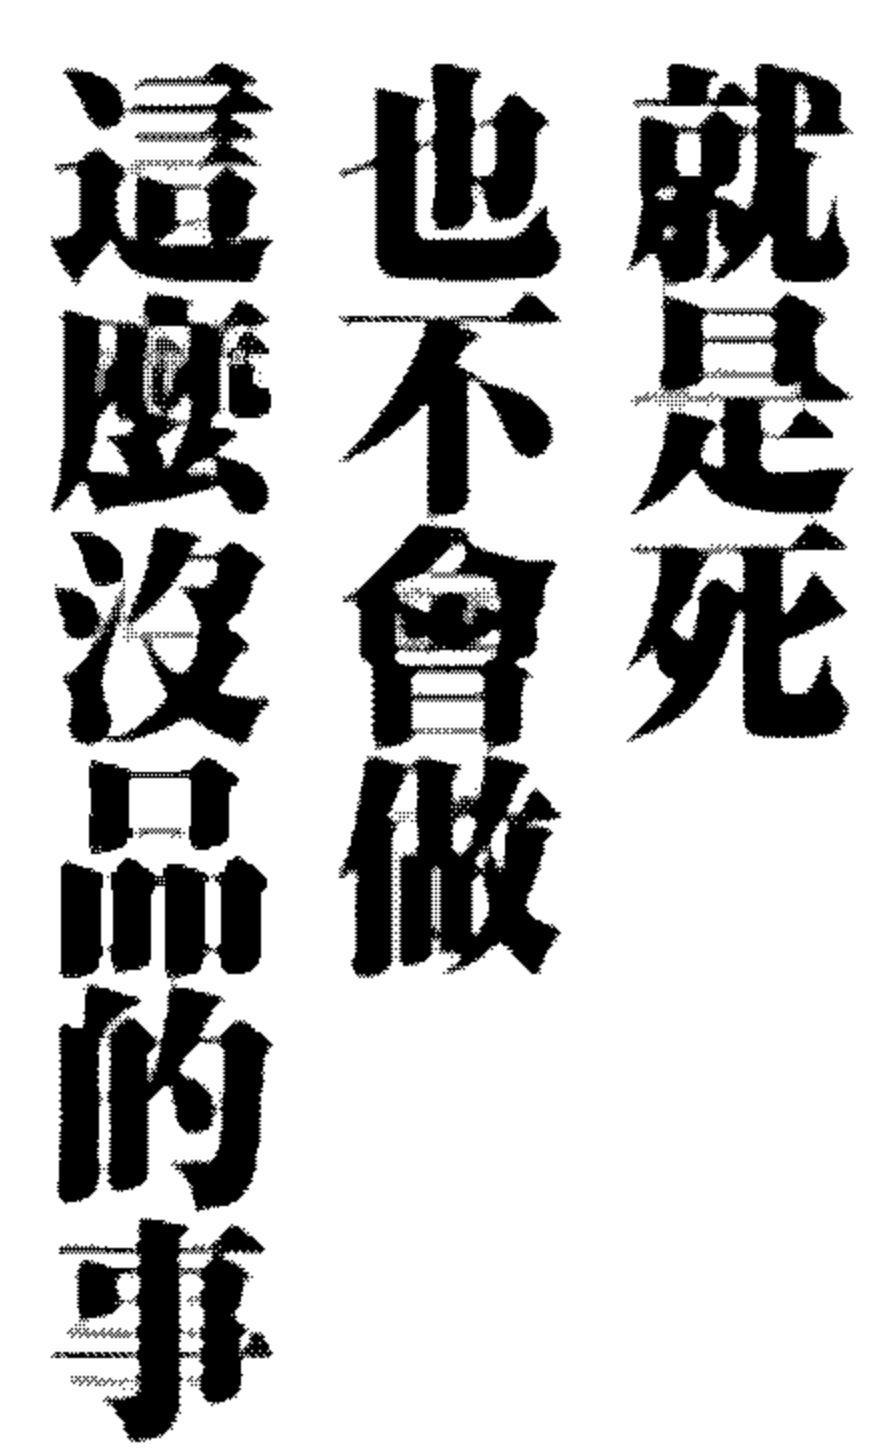 就是死
也不會做
這麼沒品的事